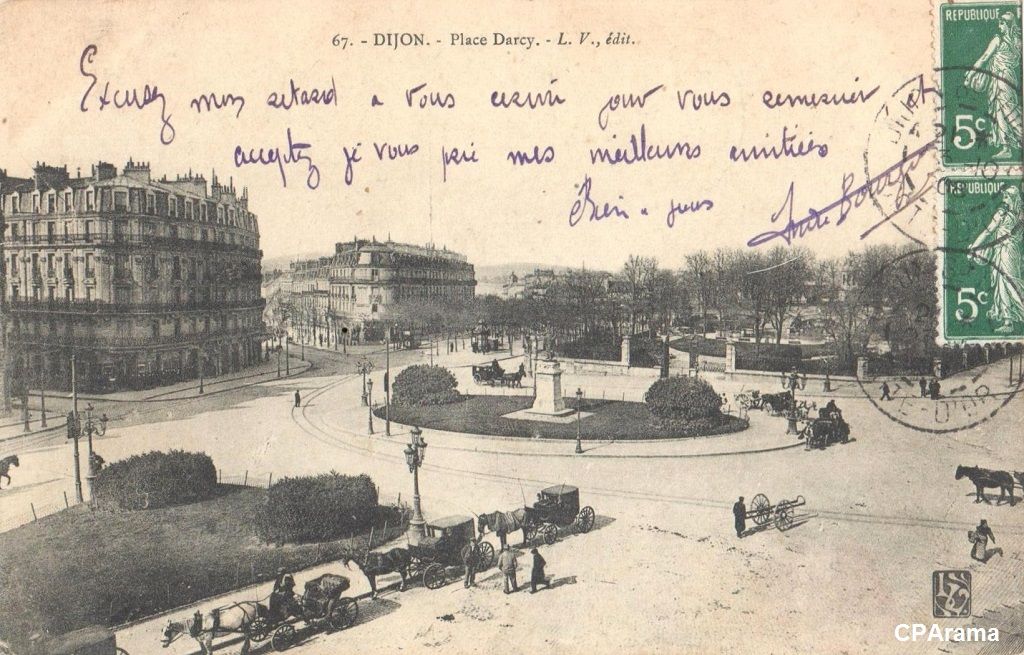 67. - DIJON. - Place Darcy. - L. V., édit.
Excusez mon retard a vous ecrire pour vous remercier
acceptez je vous prie mes meilleurs amitiées
Bien a vous
REPUBLIQUE
5c
REPUBLIQUE
5c
CÔTE-D'OR
CPArama